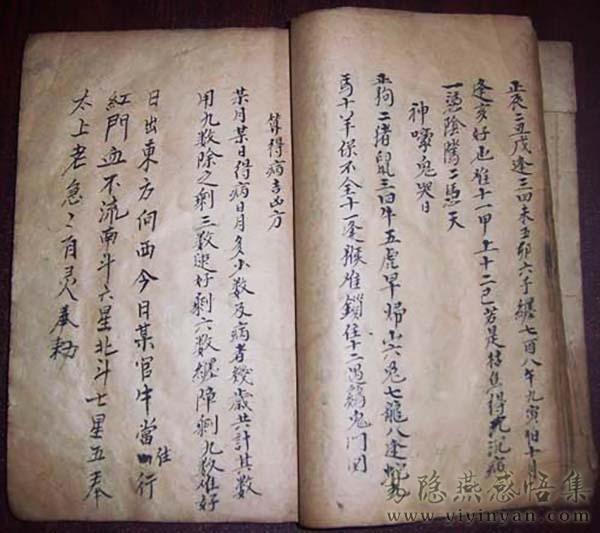 正辰二丑戊逢三四未五卯六子纏七酉八午九寅旧十
逢亥好也难十一甲上十二巳若是
一憑陰隲二憑天
神嚎鬼哭日
正狗二猪鼠三四牛五虎早歸山六兔七龍八逢蛇
馬十羊保不全十一逢猴难鎖住十二遇鷄鬼門関
算得病吉凶方
某月某日得病日月多小数及病者幾歲共計其数
用九数除之剩三数迟好剩六数纏障剩九数难好
日出東方向西今日某官牛當住行
紅門血不流南斗六星北斗七星五奉
太上老急〻自灵奉勅
隐燕感悟集
www.yiyinyan.com